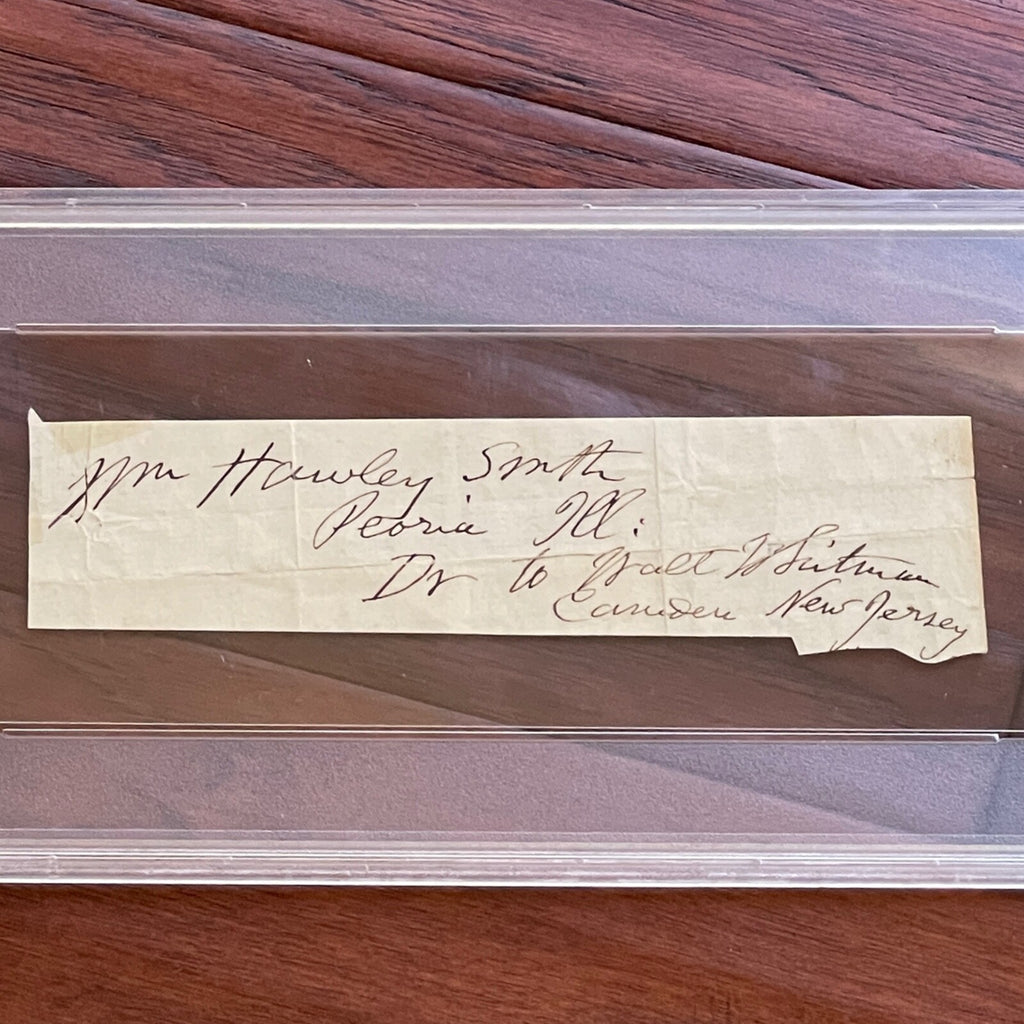 Wm Hawley Smith
Peoria Ill:
Dr to Walt Whitman
Camden New Jersey